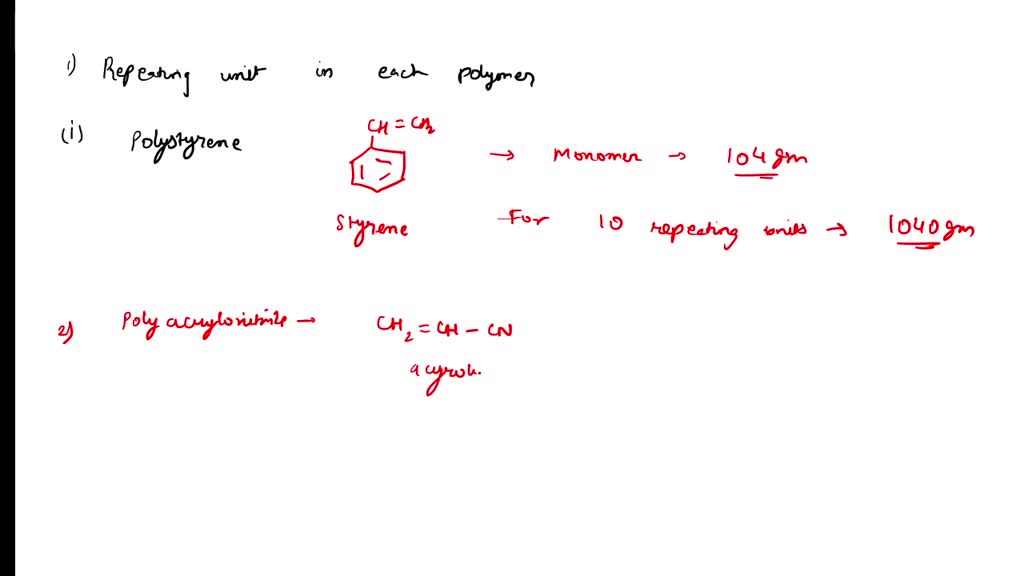 1) Repeating unit in each polymer
(i) Polystyrene
CH = CH2
→ Monomer → 104 gm
Styrene For 10 repeating units → 1040 gm
2) Poly acrylonitrile → CH2 = CH - CN